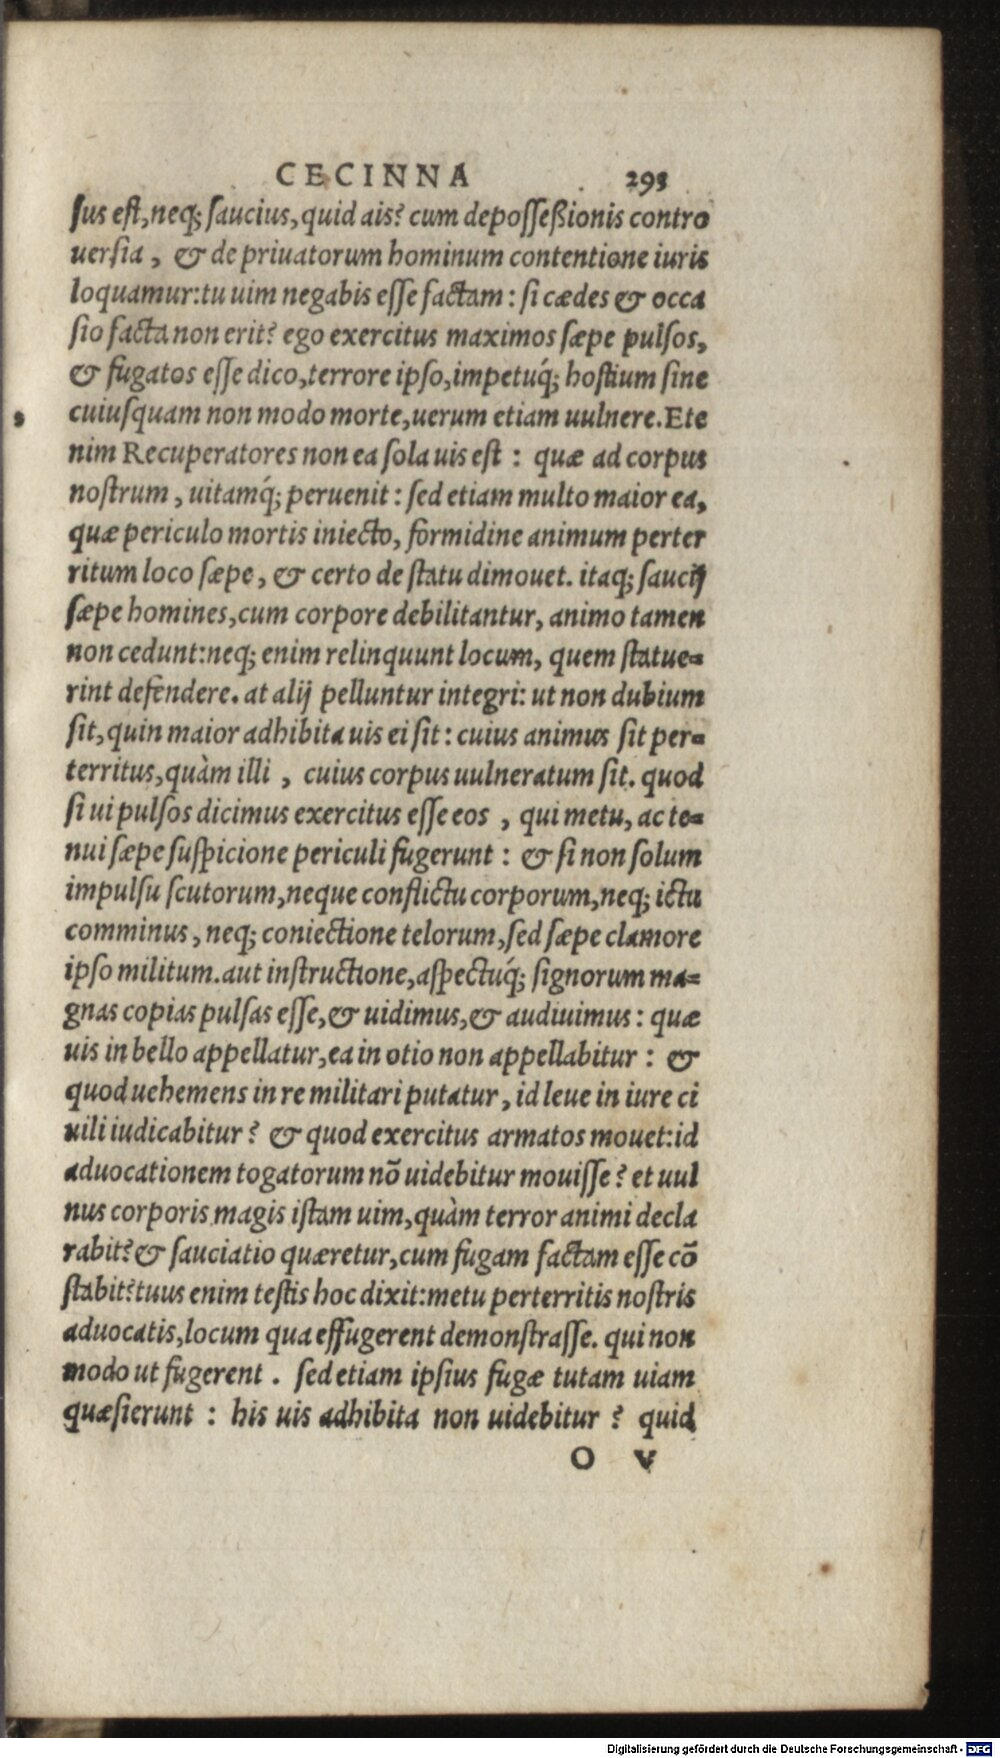 CECINNA 293
sus est, neq; saucius, quid ais? cum de possessionis contro
uersia, & de priuatorum hominum contentione iuris
loquamur: tu uim negabis esse factam: si cædes & occa
sio facta non erit? ego exercitus maximos sæpe pulsos,
& fugatos esse dico, terrore ipso, impetuq́; hostium sine
cuiusquam non modo morte, uerum etiam uulnere. Ete
nim Recuperatores non ea sola uis est: quæ ad corpus
nostrum, uitamq́; peruenit: sed etiam multo maior ea,
quæ periculo mortis iniecto, formidine animum perter
ritum loco sæpe, & certo de statu dimouet. itaq; saucij
sæpe homines, cum corpore debilitantur, animo tamen
non cedunt: neq; enim relinquunt locum, quem statue=
rint defendere. at alij pelluntur integri: ut non dubium
sit, quin maior adhibita uis ei sit: cuius animus sit per=
territus, quàm illi, cuius corpus uulneratum sit. quod
si ui pulsos dicimus exercitus esse eos, qui metu, ac te=
nui sæpe suspicione periculi fugerunt: & si non solum
impulsu scutorum, neque conflictu corporum, neq; ictu
comminus, neq; coniectione telorum, sed sæpe clamore
ipso militum. aut instructione, aspectuq́; signorum ma=
gnas copias pulsas esse, & uidimus, & audiuimus: quæ
uis in bello appellatur, ea in otio non appellabitur: &
quod uehemens in re militari putatur, id leue in iure ci
uili iudicabitur? & quod exercitus armatos mouet: id
aduocationem togatorum nõ uidebitur mouisse? et uul
nus corporis magis istam uim, quàm terror animi decla
rabit? & sauciatio quæretur, cum fugam factam esse cõ
stabit? tuus enim testis hoc dixit: metu perterritis nostris
aduocatis, locum qua effugerent demonstrasse. qui non
modo ut fugerent. sed etiam ipsius fugæ tutam uiam
quæsierunt: his uis adhibita non uidebitur? quid
O V
Digitalisierung gefördert durch die Deutsche Forschungsgemeinschaft - DFG